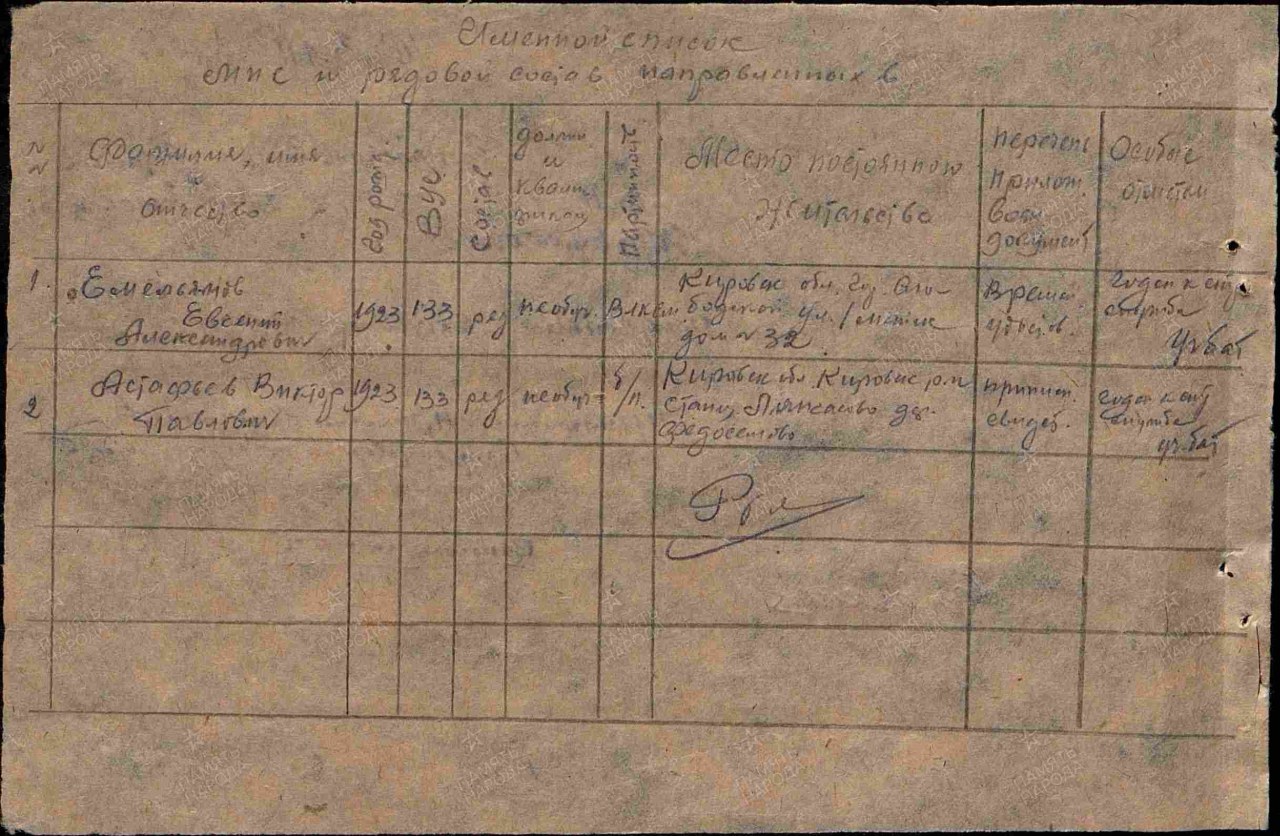 Именной список
МНС и рядовой состав направленных в
№№
Фамилия, имя
отчество
Год рожд.
ВУС
Состав
должн
и
квали
фикац
Партийность
Место постоянного
жительства
перечень
прилож.
документ
Особые
отметки
1.
Емельянов
Евгений
Александрович
1923
133
ряд
необуч.
Влксм
Кировск обл. Гор.
ул.
дом № 32
Времен.
удостов.
годен к
службе
уч.бат
2
Астафьев Виктор
Павлович
1923
133
ряд
необуч
б/п.
Кировск обл Кировск р-н
станц Лянгасово дер.
Федосеево
припис.
свидет.
годен к
службе
уч.бат
ПАМЯТЬ НАРОДА